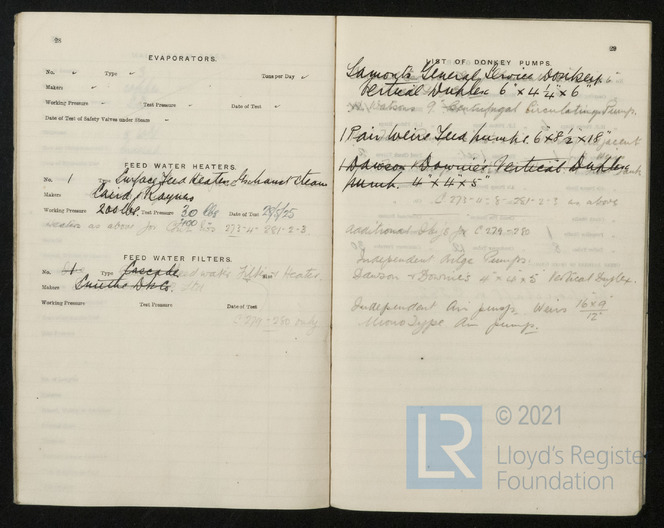 28
EVAPORATORS.
No. ✓ Type ✓ Tons per Day ✓
Makers ✓
Working Pressure ✓ Test Pressure ✓ Date of Test ✓
Date of Test of Safety Valves under Steam ✓
FEED WATER HEATERS.
No. 1 Type Surface Feed Heater Exhaust Steam
Makers Caird & Rayner
Working Pressure 200 lbs. Test Pressure 30 lbs Date of Test 28/5/25
400
Heater as above for 273-4- 281-2-3
FEED WATER FILTERS.
No. 1 Type Cascade Feed water Filter Heater. Size
Makers Smiths D Co.
Working Pressure Test Pressure Date of Test
C 279-280 only
29
LIST OF DONKEY PUMPS.
Lamonts General Service Donkey
Vertical Duplex 6" × 4 1/4" × 6"
Watsons 9" Centrifugal Circulating Pump.
1 Pair Weirs Feed pumps. 6" × 8 1/2" × 18"
1 Dawson & Downie's Vertical Duplex
pump. 4" × 4" × 5"
C 273-4-8-281-2-3 as above
Additional for C 279-280
Independent Bilge Pumps.
Dawson & Downie's 4" × 4" × 5" Vertical Duplex.
Independent Air pump. Weirs 16 × 9"
12"
Mono Type Air pump.
© 2021
LR
Lloyd's Register
Foundation